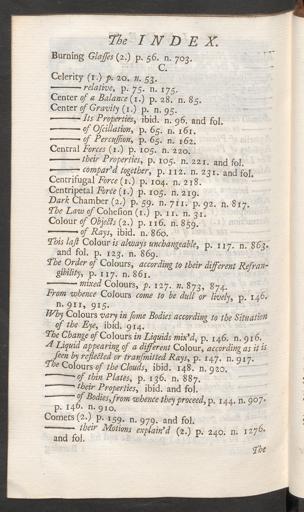 The INDEX.
Burning Glasses (2.) p. 56. n. 703.
C.
Celerity (1.) p. 20. n. 53.
—— relative, p. 75. n. 175.
Center of a Balance (1.) p. 28. n. 85.
Center of Gravity (1.) p. n. 95.
—— Its Properties, ibid. n. 96. and fol.
—— of Oscillation, p. 65. n. 161.
—— of Percussion, p. 65. n. 162.
Central Forces (1.) p. 105. n. 220.
—— their Properties, p. 105. n. 221. and fol.
—— compar'd together, p. 112. n. 231. and fol.
Centrifugal Force (1.) p. 104. n. 218.
Centripetal Force (1.) p. 105. n. 219.
Dark Chamber (2.) p. 59. n. 711. p. 92. n. 817.
The Law of Cohesion (1.) p. 11. n. 31.
Colour of Objects (2.) p. 116. n. 859.
—— of Rays, ibid. n. 860.
This last Colour is always unchangeable, p. 117. n. 863.
and fol. p. 123. n. 869.
The Order of Colours, according to their different Refran-
gibility, p. 117. n. 861.
—— mixed Colours, p. 127. n. 873, 874.
From whence Colours come to be dull or lively, p. 146.
n. 911, 915.
Why Colours vary in some Bodies according to the Situation
of the Eye, ibid. 914.
The Change of Colours in Liquids mix'd, p. 146. n. 916.
A Liquid appearing of a different Colour, according as it is
seen by reflected or transmitted Rays, p. 147. n. 917.
The Colours of the Clouds, ibid. 148. n. 920.
—— of thin Plates, p. 136. n. 887.
—— their Properties, ibid. and fol.
—— of Bodies, from whence they proceed, p. 144. n. 907.
p. 146. n. 910.
Comets (2.) p. 159. n. 979. and fol.
—— their Motions explain'd (2.) p. 240. n. 1276.
and fol.
The